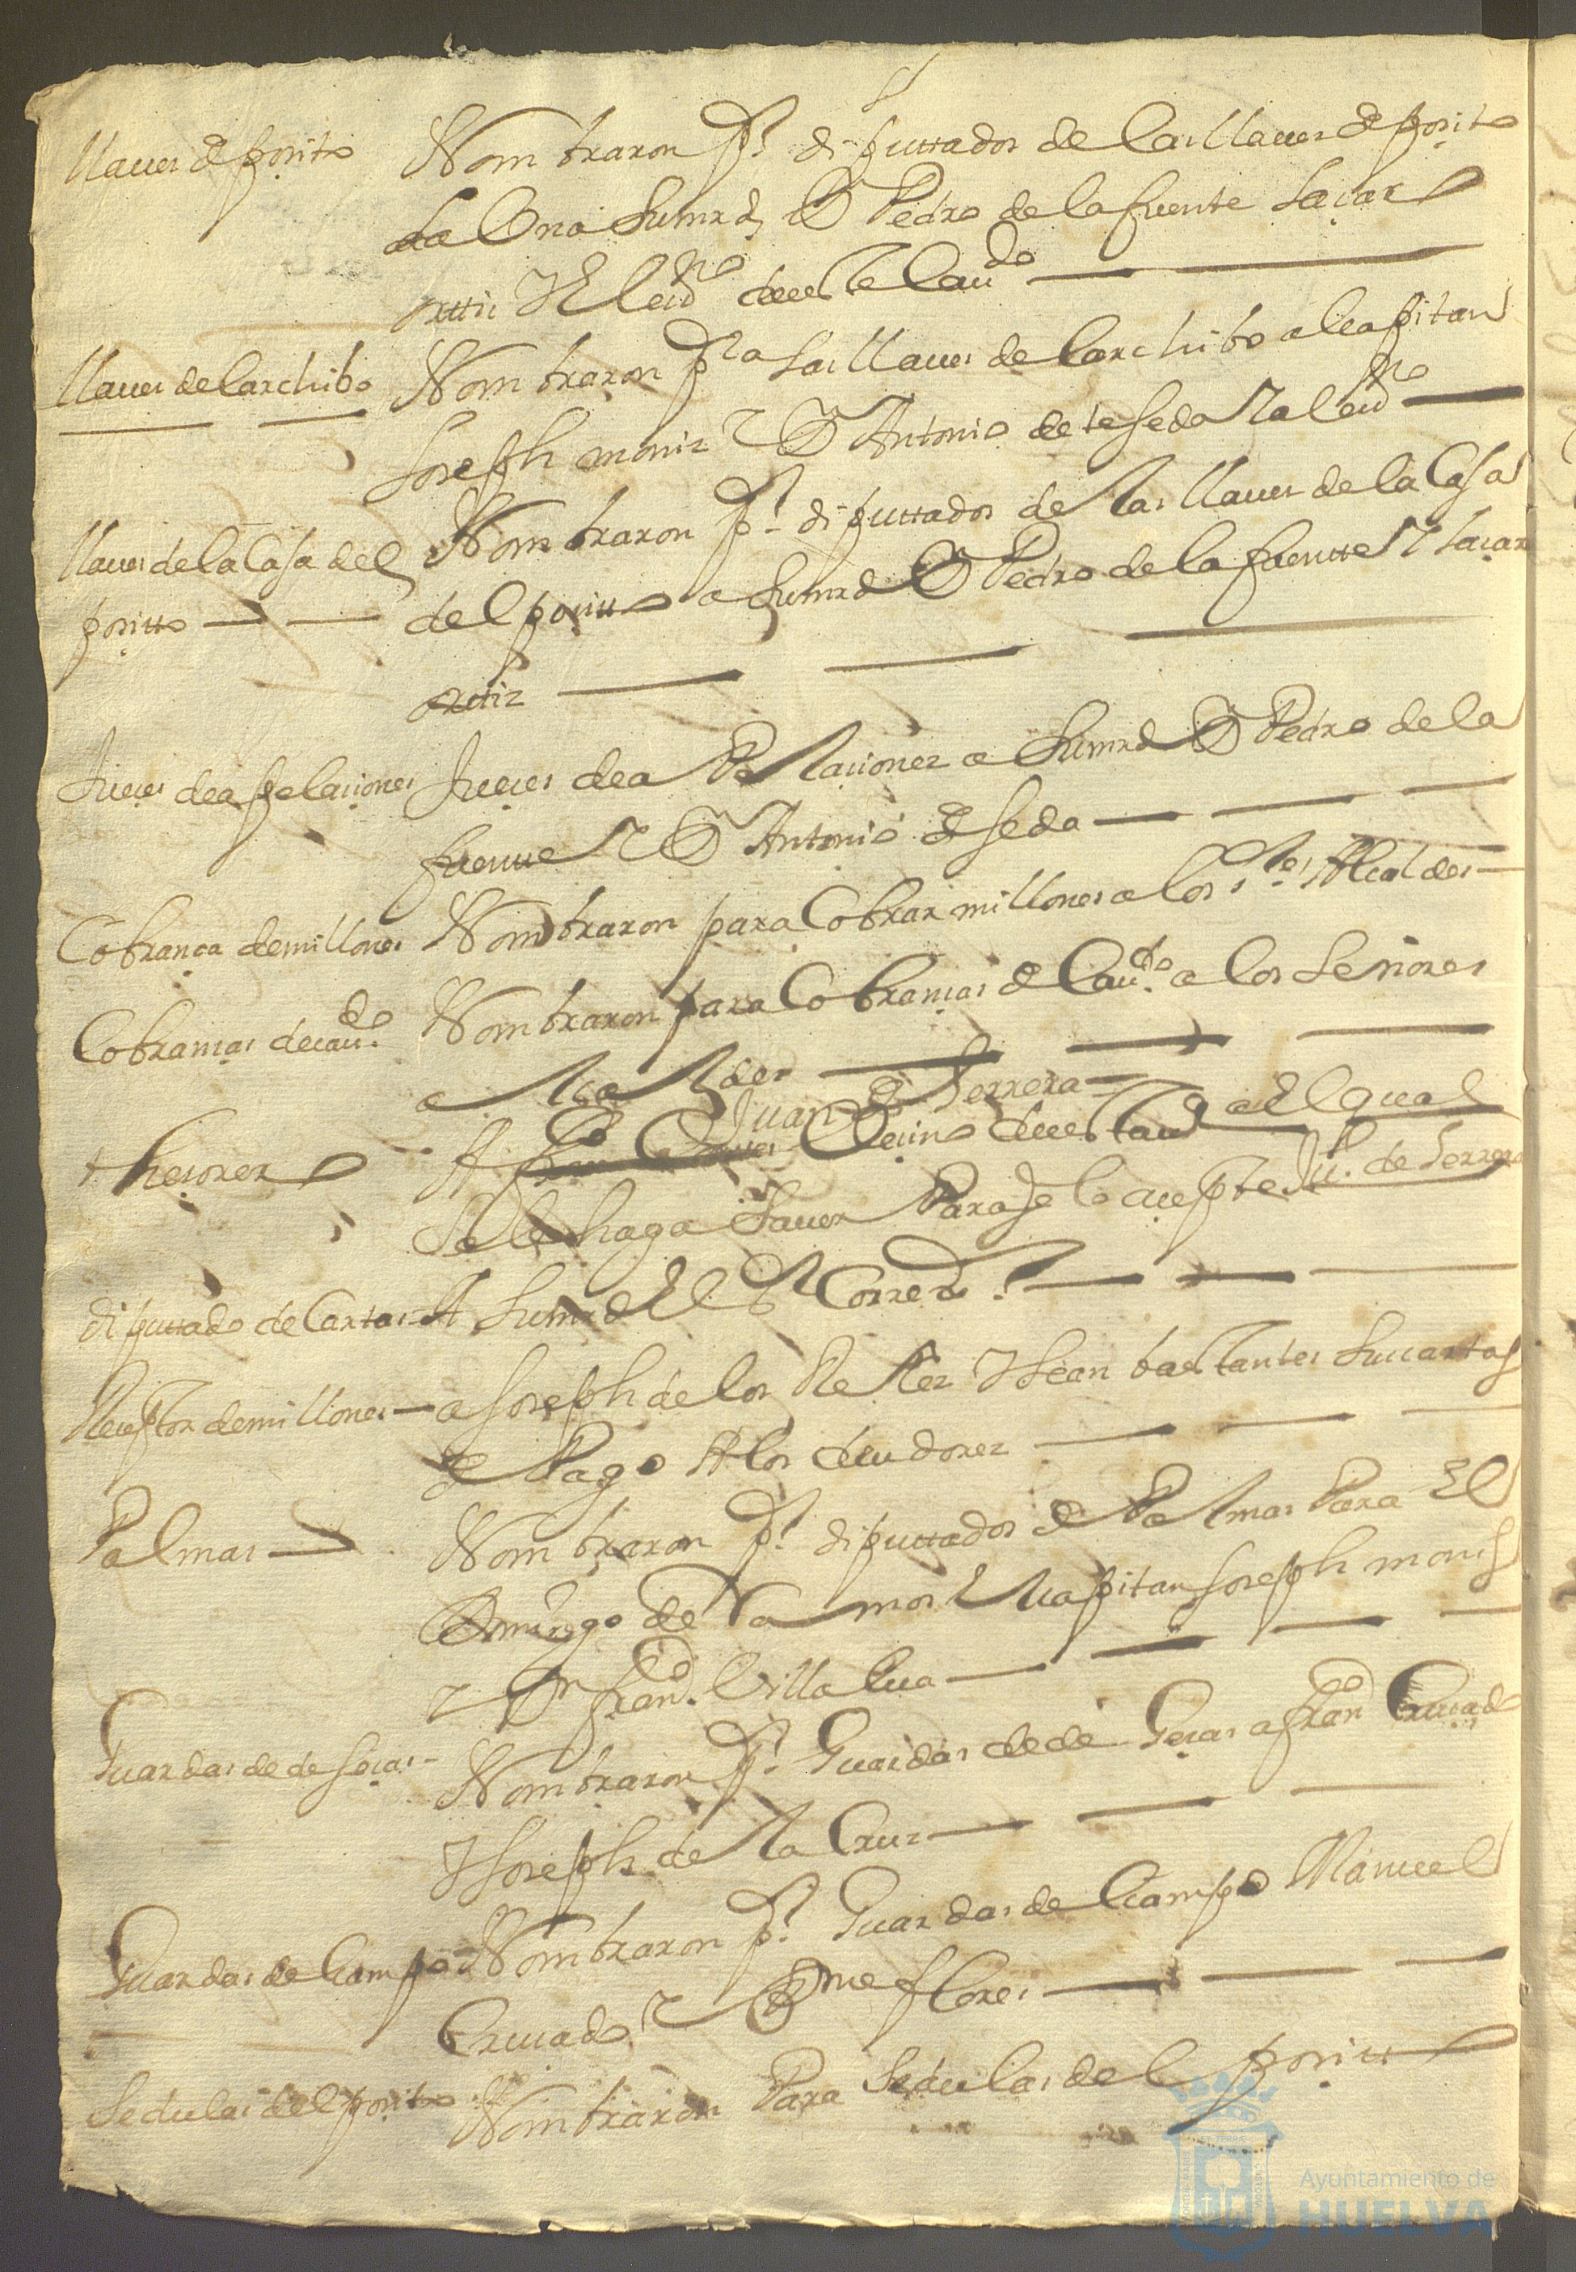 llaues de posito
Nombraron Pr diputtados de las llaues de posito
la Una Sumrd Dn Pedro de la fuente Laçar
orttiz Y El ess.no deeste Caudo
llaues del archibo
Nombraron pra las llaues del archibo al capitan
Joseph moniz Y Dn Antonio de teseda Y al ess.no
llaues de la Casa del
positto
Nombraron Pr diputtados de las llaues de la Casa
del positto a Sumrd Dn Pedro de la fuentte Y Laçar
orttiz
Jueçes de apelaçiones
Jueçes de a Pelaçiones a Sumrd Dn Pedro de la
fuentte Y Dn Antonio de seda
Cobrança de millones
Nombraron para Cobrar millones a los sres Alcaldes
Cobranças de caudo
Nombraron para Cobranças del Caudo a los Señores
alcaldes
Juan de Herrera
thesorer
A Veçino deesta ciud al qual
Se le haga Sauer Para q lo açepte Ju. de Herrera
diputtado de Cartas
A Sumrd El Sr Corredr
Reçeptor de millones
a Joseph de los Reyes Y sean bastantes sus cartas
de Pago A los deudores
Palmas
Nombraron Pr diputtados de Palmas Para El
Domingo de Ramos Al capitan Joseph monis
Y Dn Fran.co Villalua
Guardas de desas
Nombraron Pr Guardas de deesas a fran.co Cruçado
Y Joseph de la Cruz
Guardas de Campo
Nombraron Pr Guardas de Campo Manuel
Cruçado Y Bme flores
Sedulas del posito
Nombraron Para Sedulas del positto
Ayuntamiento de
HUELVA